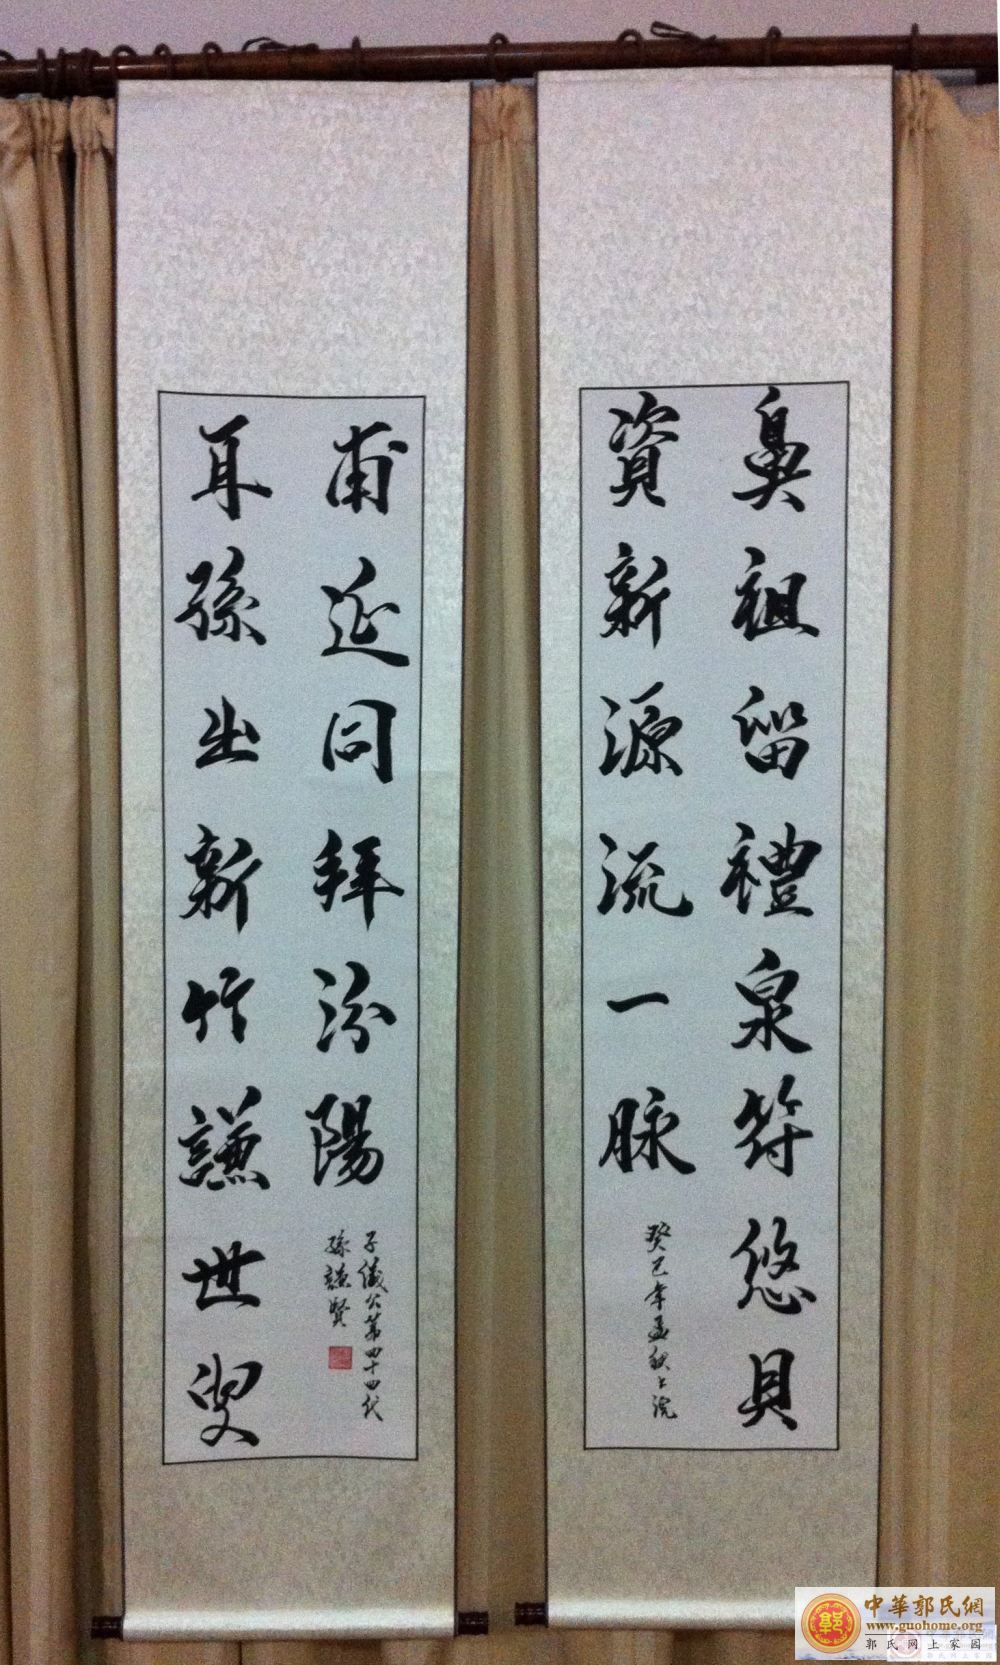 鼻祖留禮泉符悠貝
資新源流一脉
癸巳年孟秋上浣
耳孫出新竹謙世叟
甫延同拜汾陽
子儀公第四十四代
孫謙賢
中華郭氏網
www.guohome.org
郭氏网上家园